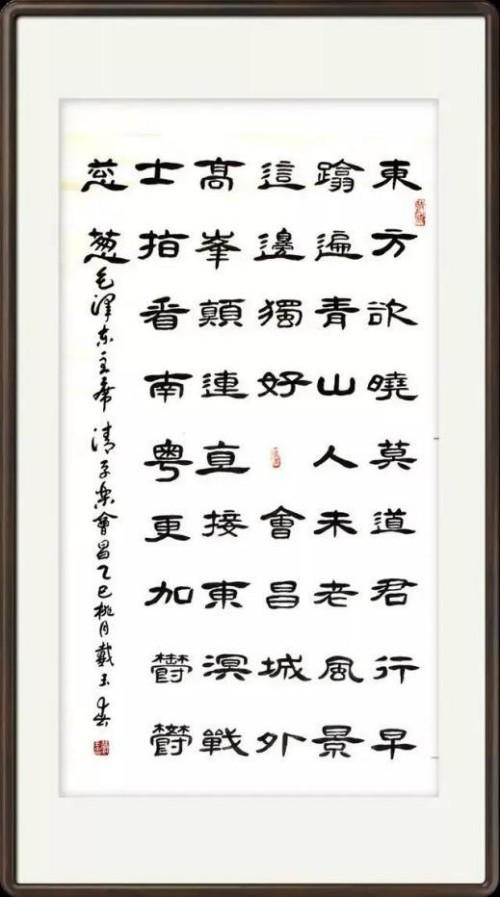 東方欲曉莫道君行早
蹋遍青山人未老風景
這邊獨好會昌城外
髙峯顛連直接東溟戰
士指看南粤更加鬱鬱
葱葱毛澤东主席清平樂會昌乙巳桃月戴玉春